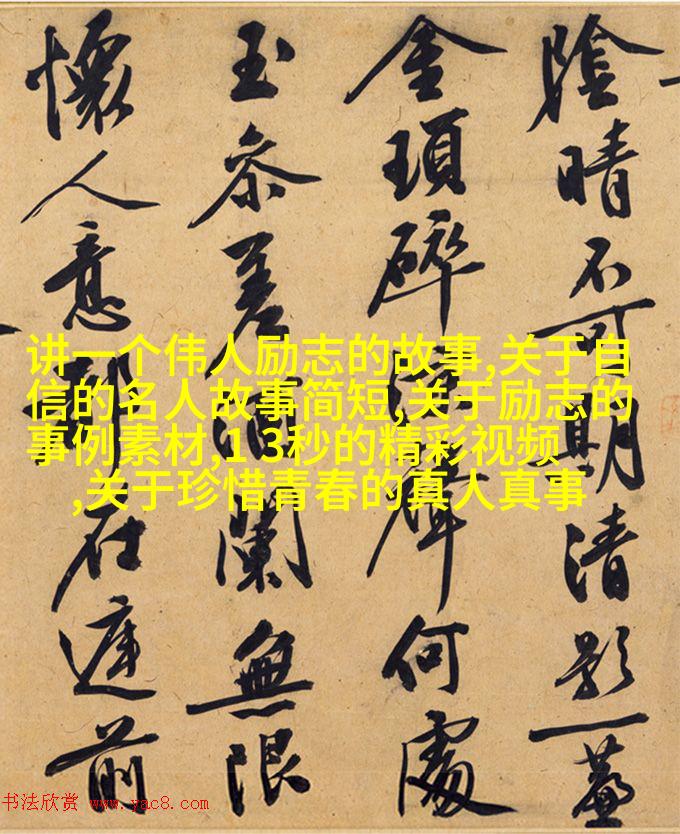 陰晴不可期清影一
金瑣碎聲何處
玉參差闌無限
懷人意都在前
讲一个伟人励志的故事,关于自
信的名人故事简短,关于励志的
事例素材,1 3秒的精彩视频
,关于珍惜青春的真人真事
书法欣赏 www.yac8.com